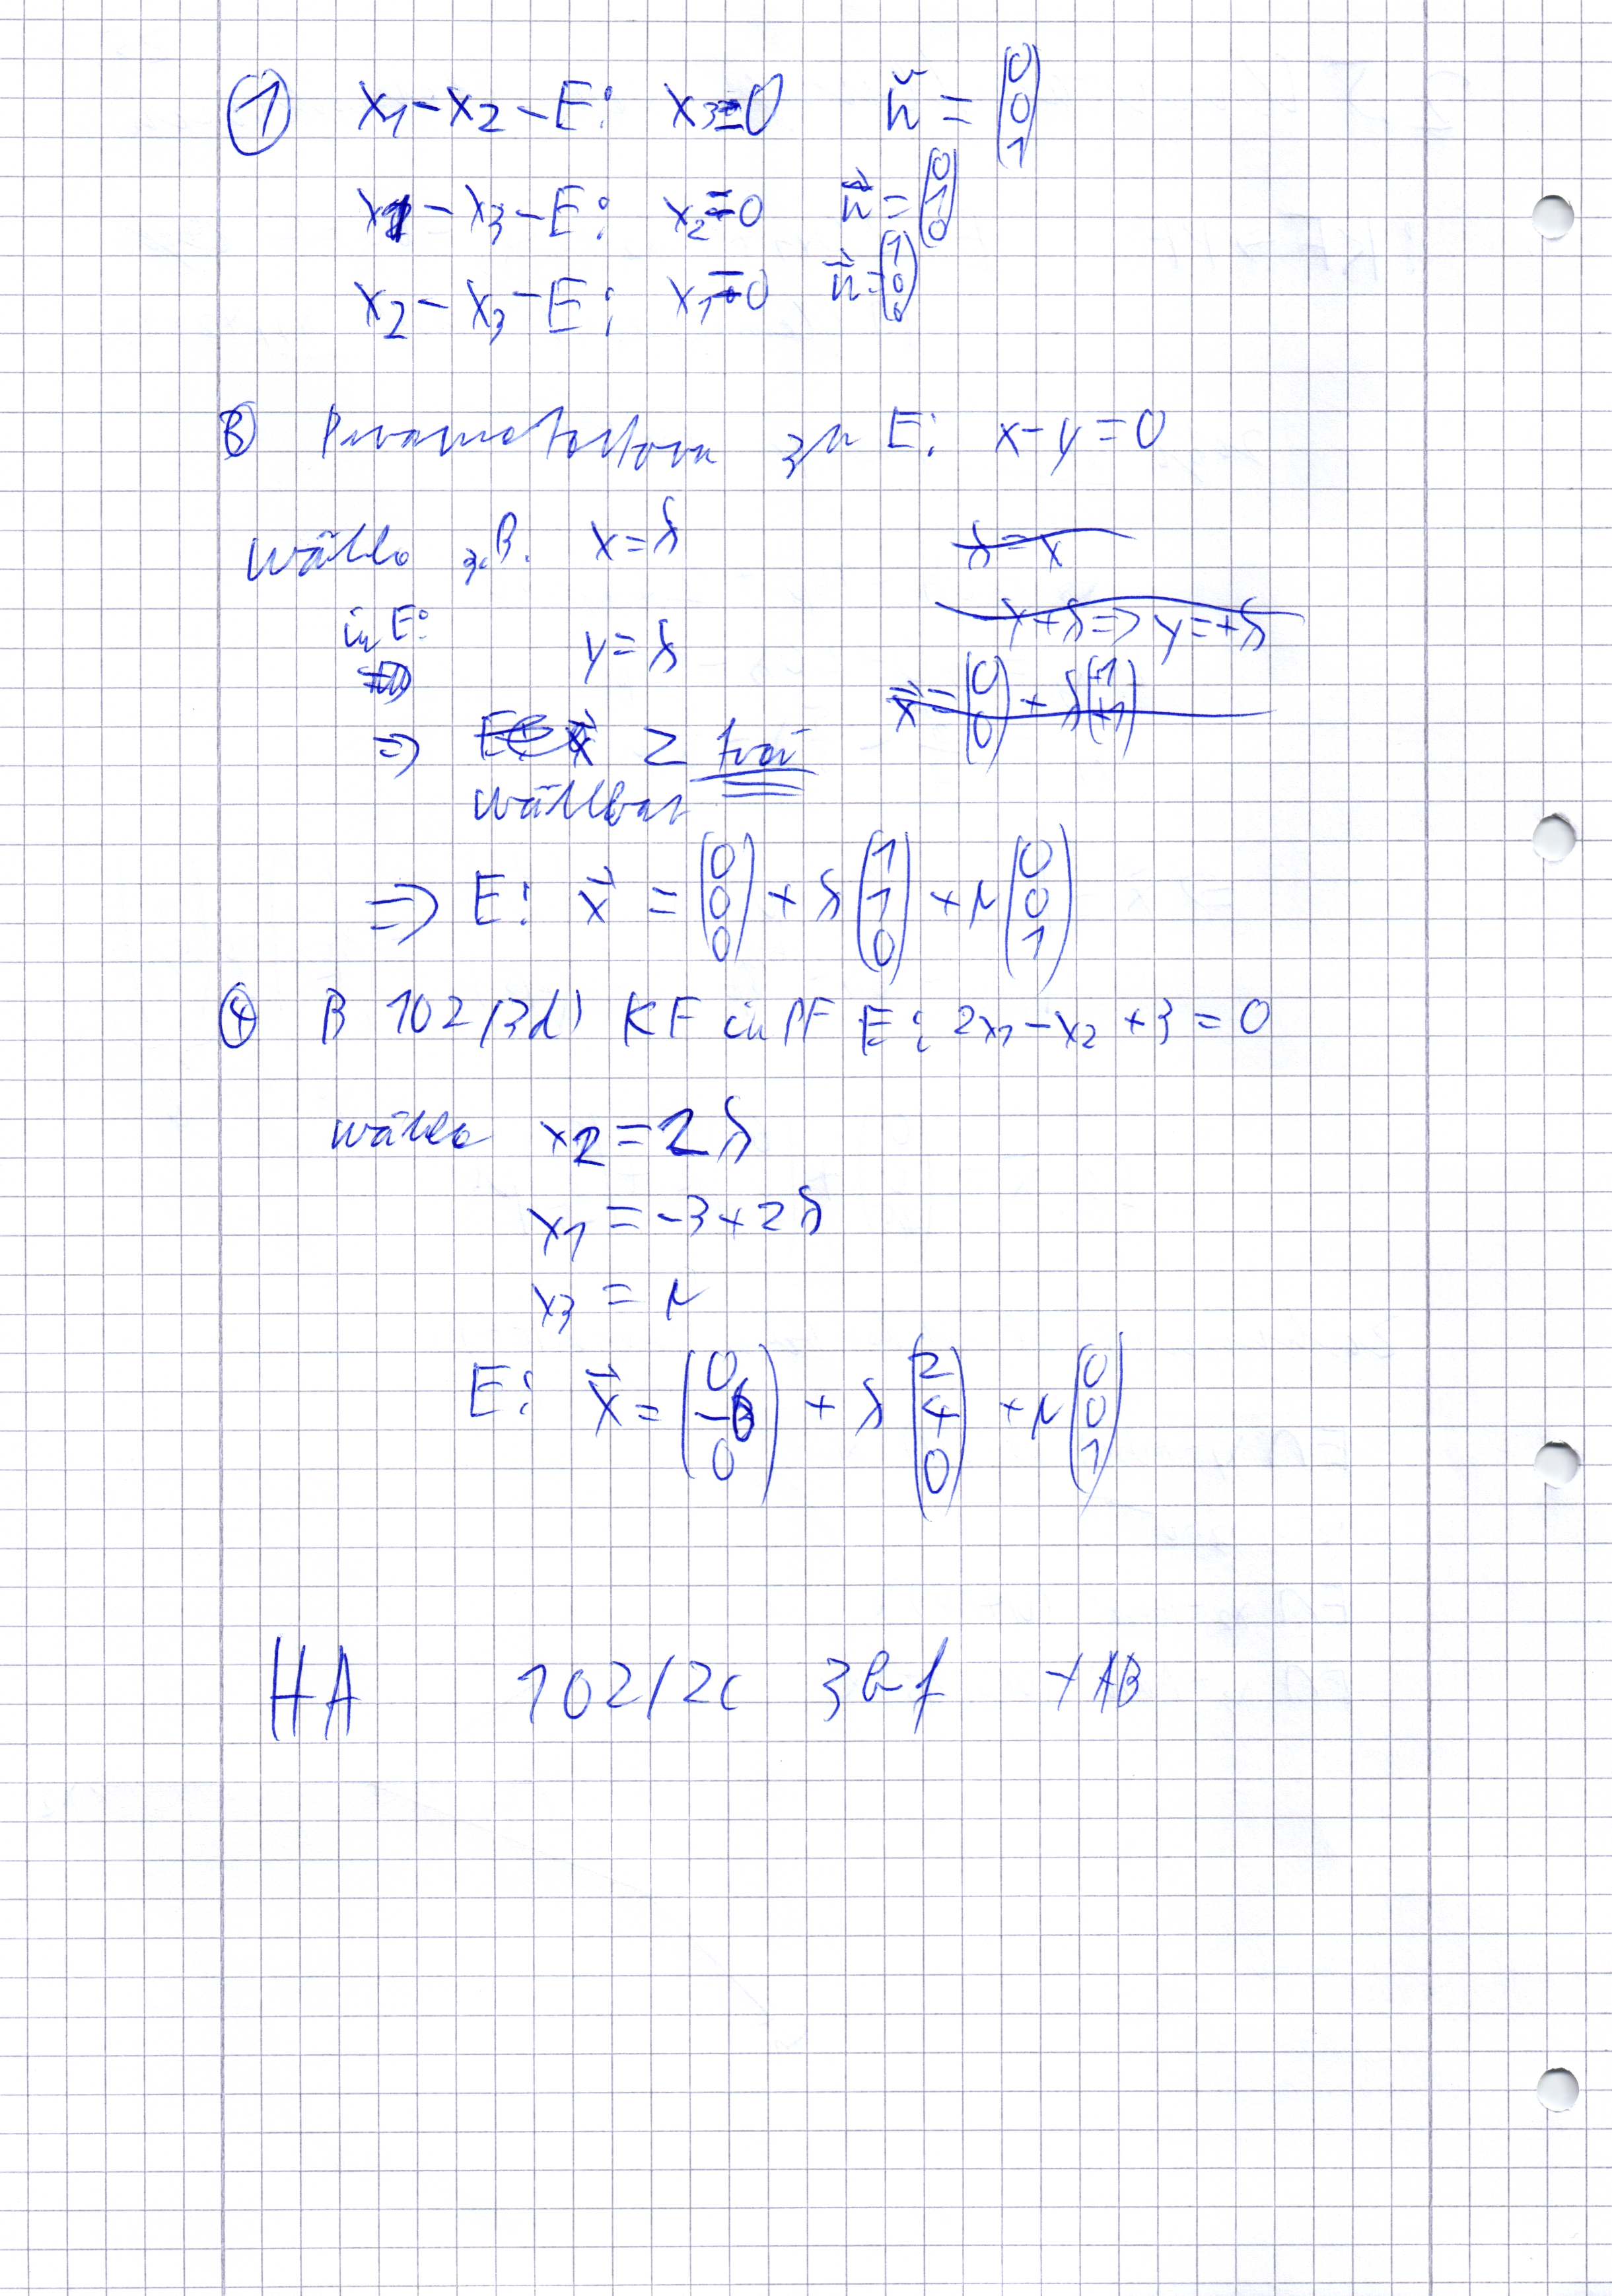 ① x₁-x₂-E: x₃=0 n⃗ = (0 0 1)
x₁-x₃-E: x₂=0 n⃗ = (0 1 0)
x₂-x₃-E: x₁=0 n⃗ = (1 0 0)
③ Parameterform zu E: x-y=0
Wähle z.B. x=λ
in E: y=λ
⇒ z frei
wählbar
⇒ E: x⃗ = (0 0 0) + λ (1 1 0) + μ (0 0 1)
④ B 102/3d) KF in PF E: 2x₁-x₂+3=0
wähle x₂=2λ
x₁=-3+2λ
x₃=μ
E: x⃗ = + λ (2 4 0) + μ (0 0 1)
HA 102/2c 3bf + AB